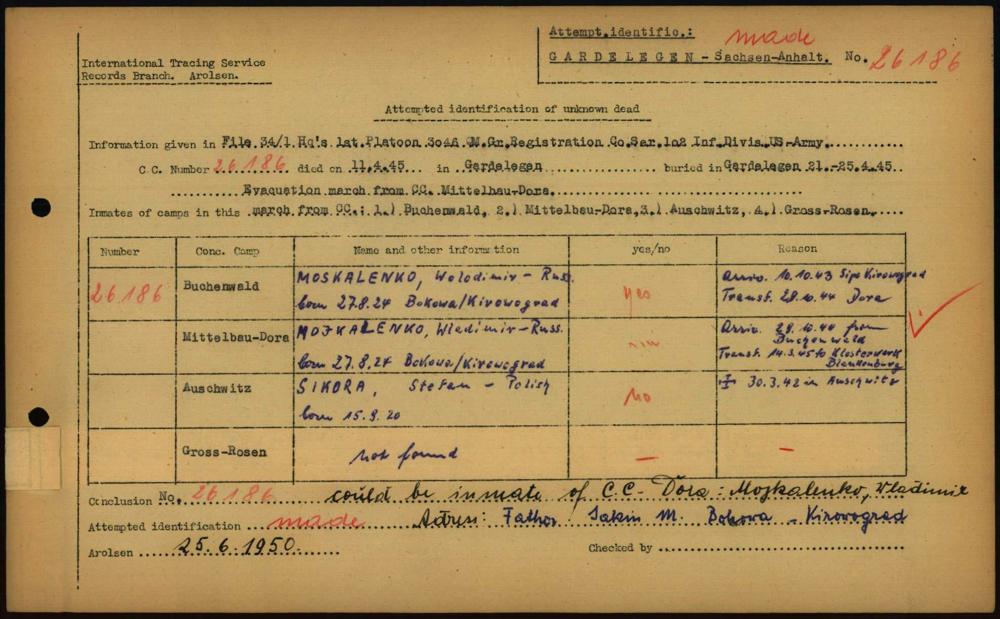 Attempt.identific.: made
GARDELEGEN - Sachsen-Anhalt. No. 26186
International Tracing Service
Records Branch. Arolsen.
Attempted identification of unknown dead
Information given in File 34/1 Hq's 1st.Platoon 3046 QM.Gr.Registration Co.Ser.102 Inf.Divis.US-Army
C.C. Number 26186 died on 11.4.45 in Gardelegen buried in Gardelegen 21.-25.4.45
Evaquation march from CC. Mittelbau-Dora
Inmates of camps in this march from CC.: 1.) Buchenwald, 2.) Mittelbau-Dora, 3.) Auschwitz, 4.) Gross-Rosen.
Number Conc. Camp Name and other information yes/no Reason
26186 Buchenwald MOSKALENKO, Wolodimir - Russ. yes Arriv. 10.10.43 Sipo Kirowograd
born 27.8.24 Bokowa/Kirowograd Transf. 28.10.44 Dora
Mittelbau-Dora MOJKALENKO, Wladimir - Russ. Arriv. 29.10.44 from
Buchenwald
born 27.8.24 Bokowa/Kirowograd Transf. 14.3.45 to Klosterwerk
Blankenburg
Auschwitz SIKORA, Stefan - Polish no 30.3.42 in Auschwitz
born 15.9.20
Gross-Rosen not found — —
Conclusion No. 26186 could be inmate of C.C. Dora: Mojkalenko, Wladimir
Attempted identification made Adress: Father Jakim M. Bokowa - Kirowograd
Arolsen 25.6.1950. Checked by